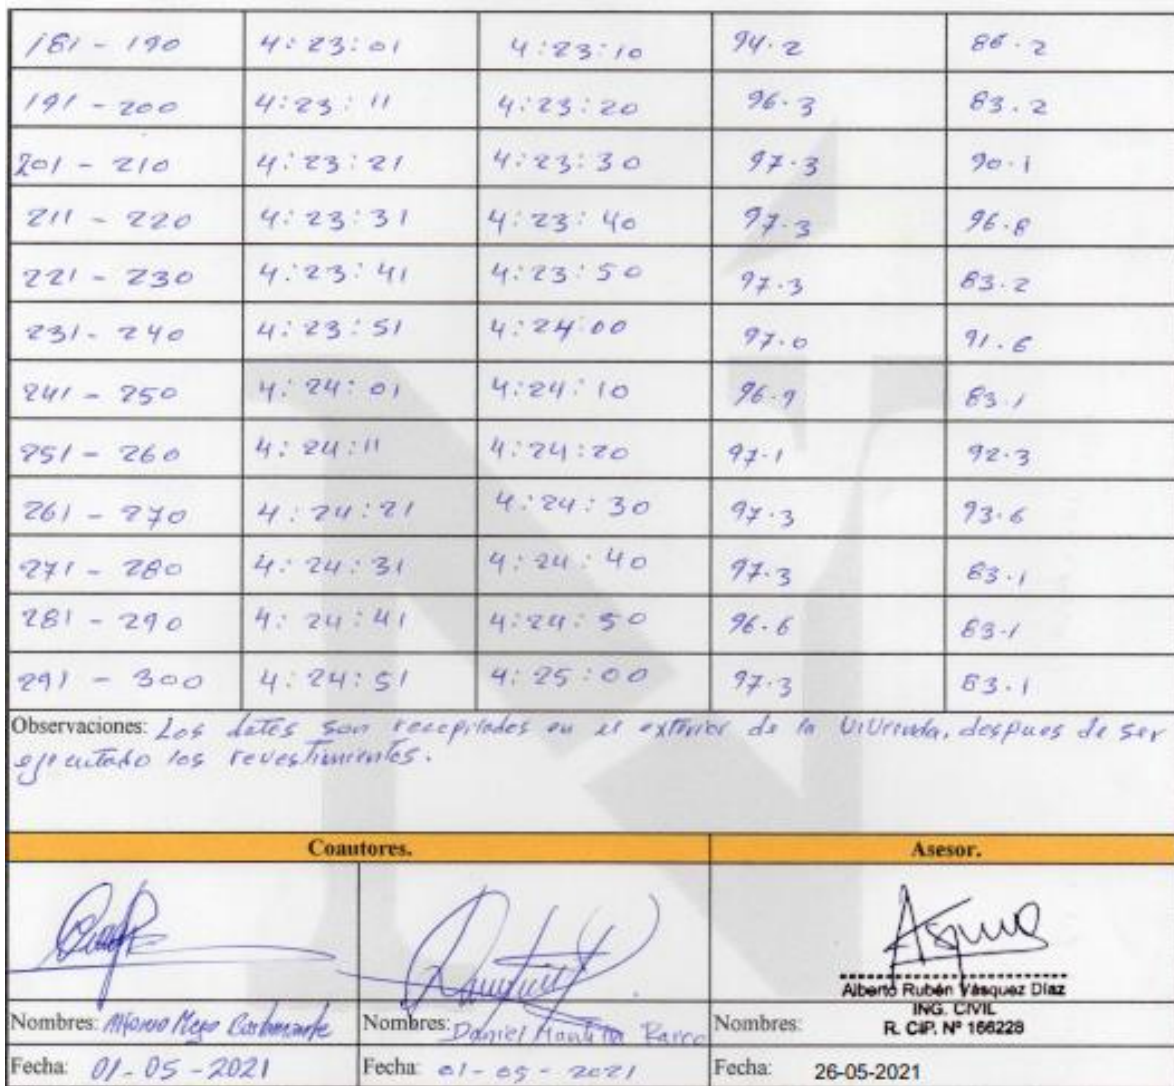 181 - 190 4:23:01 4:23:10 94.2 86.2
191 - 200 4:23:11 4:23:20 96.3 83.2
201 - 210 4:23:21 4:23:30 97.3 90.1
211 - 220 4:23:31 4:23:40 97.3 96.8
221 - 230 4:23:41 4:23:50 97.3 83.2
231 - 240 4:23:51 4:24:00 97.0 91.6
241 - 250 4:24:01 4:24:10 96.9 83.1
251 - 260 4:24:11 4:24:20 97.1 92.3
261 - 270 4:24:21 4:24:30 97.3 93.6
271 - 280 4:24:31 4:24:40 97.3 83.1
281 - 290 4:24:41 4:24:50 96.6 83.1
291 - 300 4:24:51 4:25:00 97.3 83.1
Observaciones: Los datos son recopilados en el exterior de la vivienda, despues de ser
ejecutado los revestimientos.
Coautores. Asesor.
Alberto Rubén Vásquez Díaz
ING. CIVIL
R. CIP. Nº 166228
Nombres: Nombres: Daniel Nombres:
Fecha: 01-05-2021 Fecha: 01-05-2021 Fecha: 26-05-2021